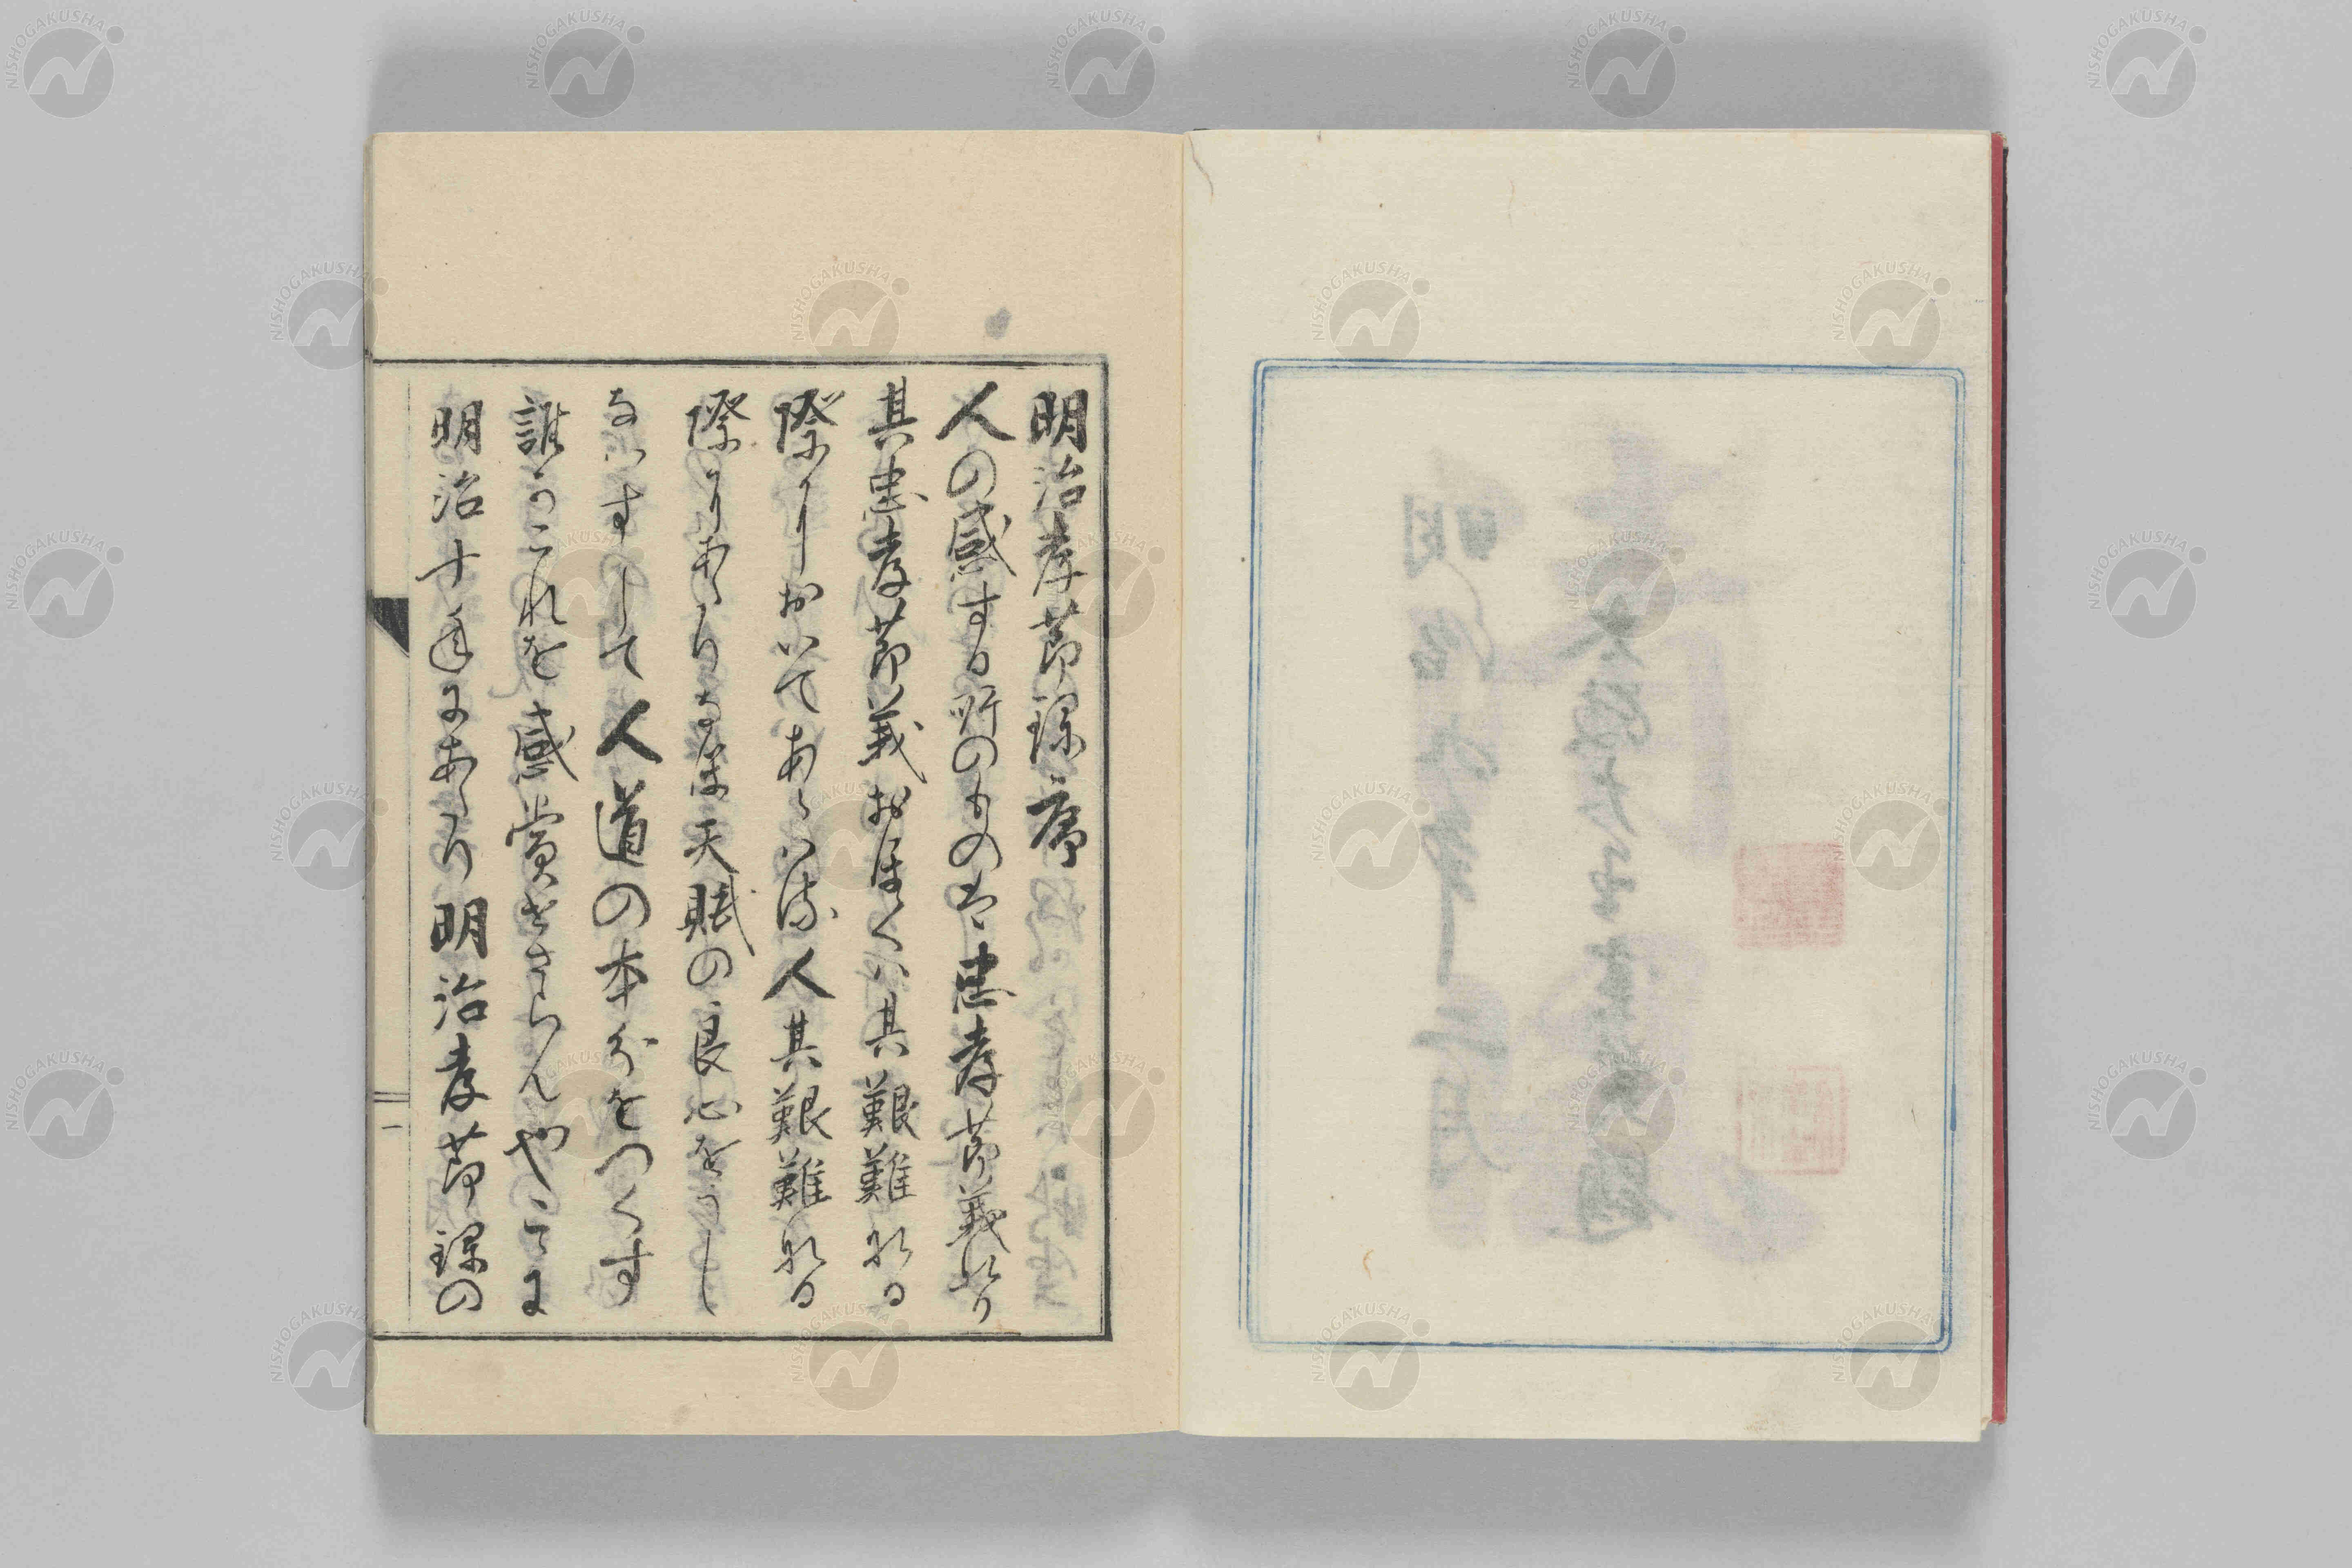 明治孝節録序
人の感する所のものは忠孝節義なり
其忠孝節義おほくは其艱難なる
際においてあらはる人其艱難なる
際にあたりなほ天賦の良心をうし
なはすして人道の本分をつくす
誰かこれを感賞せさらんやこゝに
明治十年にあたり明治孝節録の
一